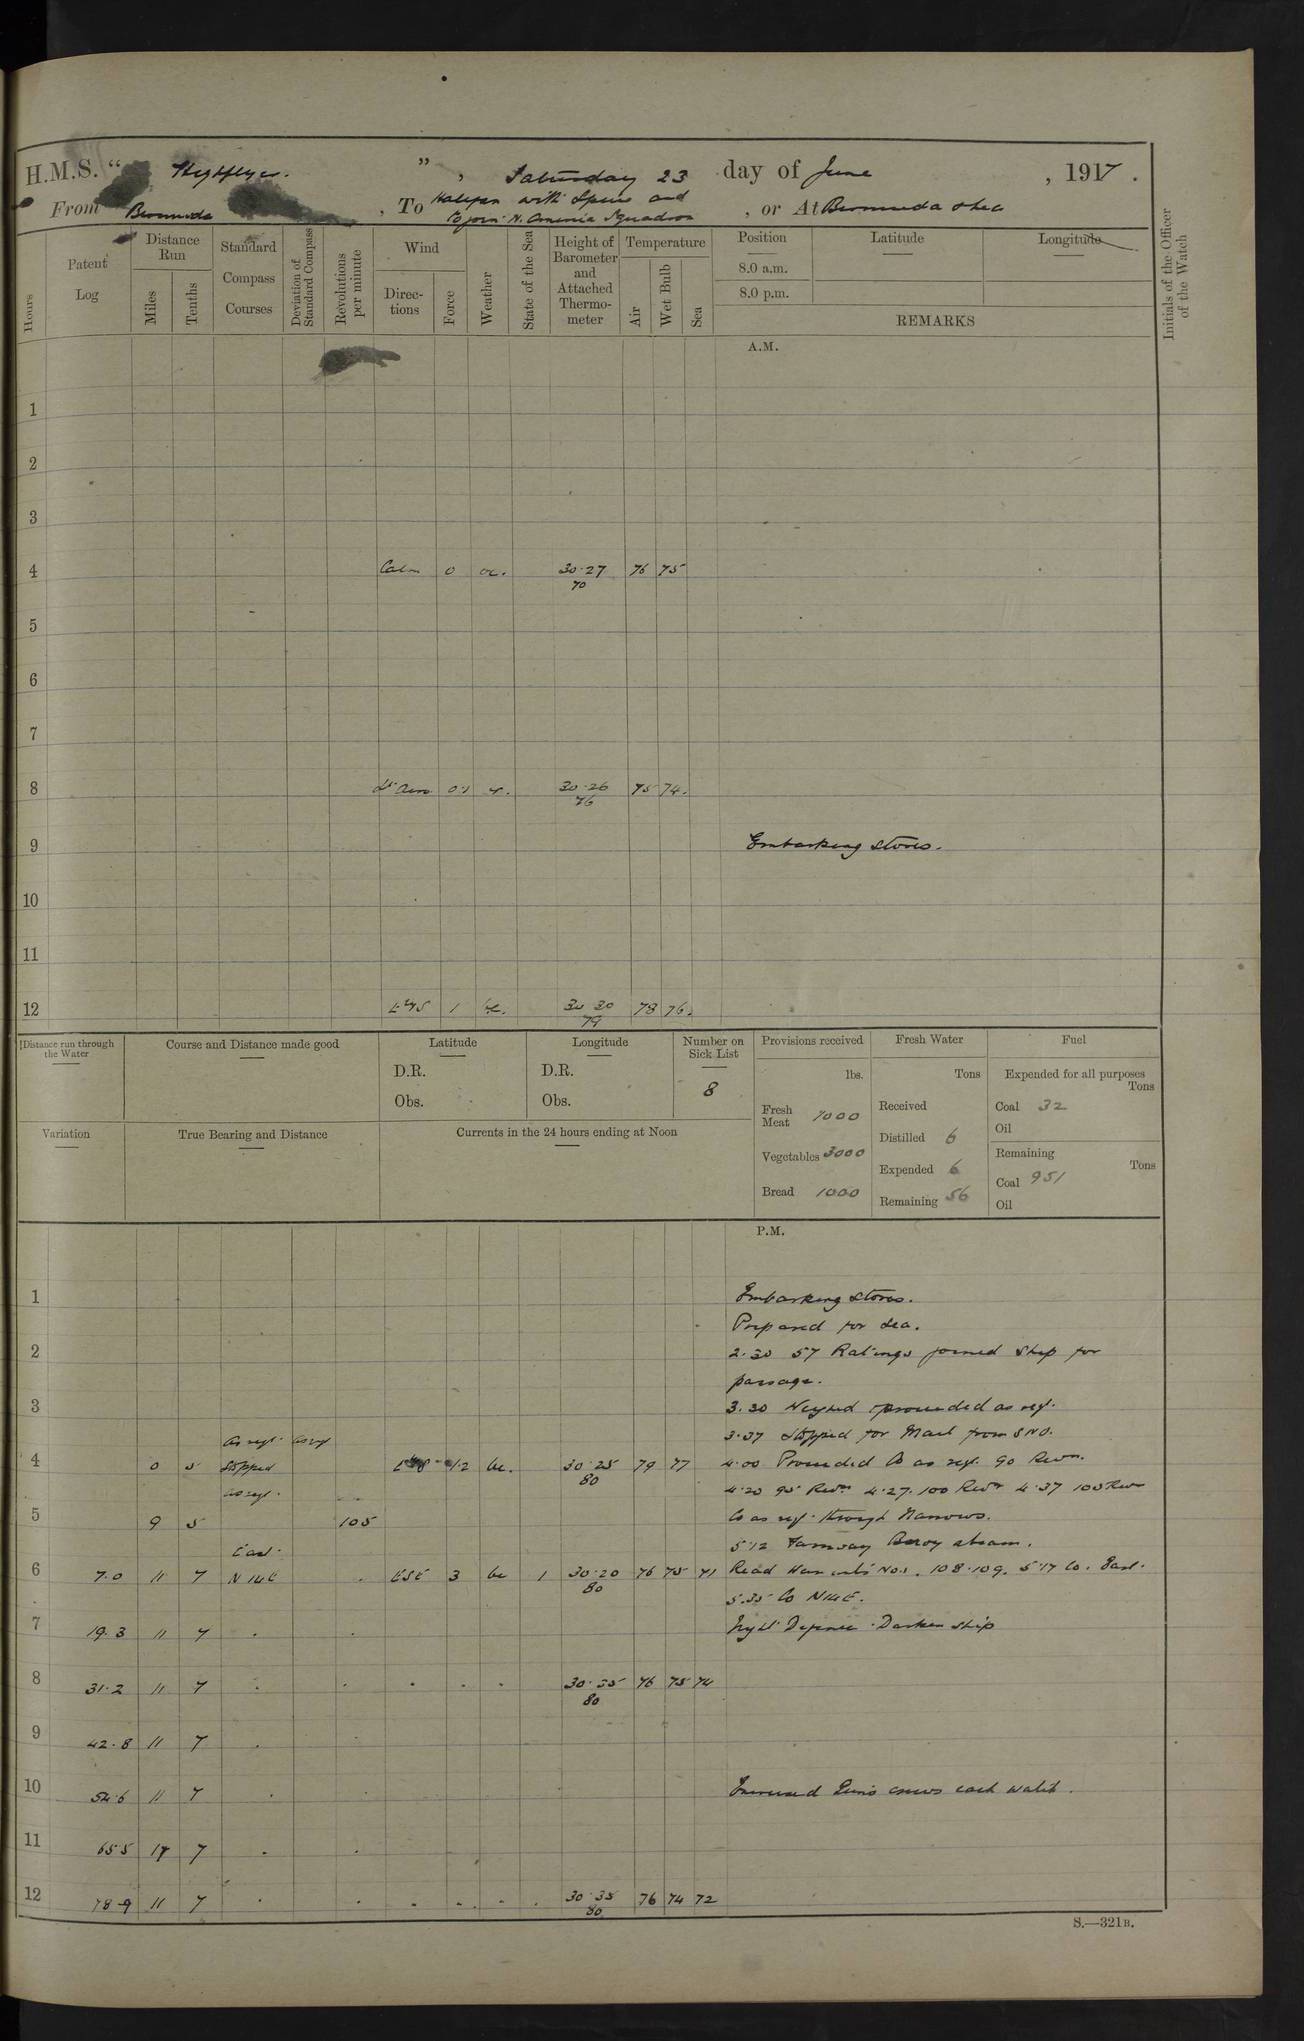 H.M.S. “ Highflyer. ” , Saturday 23 day of June , 1917 .
From Bermuda , To Halifax with Specie and , or At Bermuda & Sea
to join N. America Squadron
Hours
Patent Log
Distance Run
Miles
Tenths
Standard Compass Courses
Deviation of Standard Compass
Revolutions per minute
Wind
Directions
Force
Weather
State of the Sea
Height of Barometer and Attached Thermometer
Temperature
Air
Wet Bulb
Sea
Position
Latitude
Longitude
8.0 a.m.
8.0 p.m.
REMARKS
Initials of the Officer of the Watch
A.M.
1
2
3
4 Calm 0 oc. 30·27 76 75
70
5
6
7
8 Lt Airs 0·1 30·26 75 74.
76
9 Embarking stores.
10
11
12 1 bc. 30 30 78 76.
79
Distance run through the Water
Course and Distance made good
Latitude
D.R.
Obs.
Longitude
D.R.
Obs.
Number on Sick List
8
Variation
True Bearing and Distance
Currents in the 24 hours ending at Noon
Provisions received
lbs.
Fresh Meat 1000
Vegetables 3000
Bread 1000
Fresh Water
Tons
Received
Distilled 6
Expended 6
Remaining 56
Fuel
Expended for all purposes
Tons
Coal 32
Oil
Remaining
Tons
Coal 951
Oil
P.M.
1 Embarking stores.
Prepared for sea.
2 2.30 57 Ratings joined ship for
passage.
3 3.30 Weighed & proceeded as req.
as req. as req 3.37 Stopped for Mail from SNO.
4 0 5 Stopped 1·2 bc. 30·25 79 77 4.00 Proceeded Co as req. 90 Revns.
80
as req. 4.20 95 Revns 4.27. 100 Revns 4.37 105 Revns
5 9 5 105 Co as req. through Narrows.
East. 5.12 Fairway Buoy abeam.
6 7.0 11 7 N14E ESE 3 bc 1 30·20 76 75 71 Read Warrants Nos. 108·109. 5.17 Co. East.
80
5.35 Co N14E.
7 19.3 11 7 Night Defence. Darken ship
8 31.2 11 7 30·35 76 75 74
80
9 42.8 11 7
10 54.6 11 7 Exercised Guns crews each watch.
11 65.5 11 7
12 78.9 11 7 30·35 76 74 72
80
S.—321B.